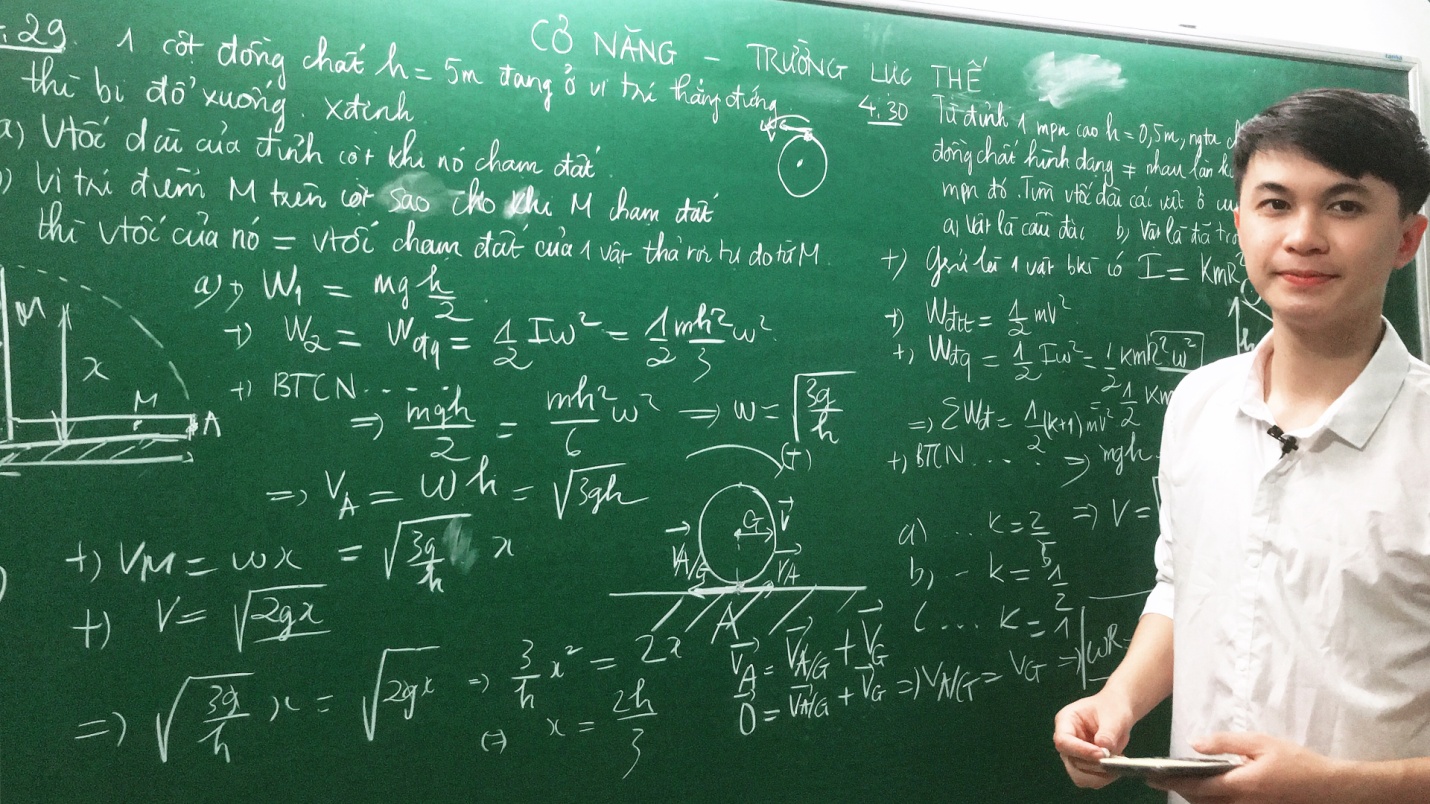 CƠ NĂNG - TRƯỜNG LỰC THẾ
.29. 1 cột đồng chất h = 5m đang ở vị trí thẳng đứng
thì bị đổ xuống. Xđịnh
a) Vtốc dài của đỉnh cột khi nó chạm đất.
) Vị trí điểm M trên cột sao cho khi M chạm đất
thì vtốc của nó = vtốc chạm đất của 1 vật thả rơi tự do từ M.
a) +) W₁ = mg h/2.
+) W₂ = Wđq = 1/2 Iω² = 1/2 mh²/3 ω²
+) BTCN.....
=> mgh/2 = mh²/6 ω² => ω = √(3g/h)
=> V_A = ωh = √(3gh)
+) V_M = ωx = √(3g/h) x
+) V = √(2gx)
=> √(3g/h) x = √(2gx) => 3/h x² = 2x
(=) x = 2h/3
M
x
M
A
(+)
G
V⃗
V⃗A/G
V⃗A
A
V⃗A = V⃗A/G + V⃗G
0⃗ = V⃗A/G + V⃗G => VA/G = VG => ωR =
4.30 Từ đỉnh 1 mpn cao h = 0,5m, ngta
đồng chất hình dạng ≠ nhau lăn
mpn đó. Tìm vtốc dài các vật ở
a) Vật là cầu đặc b) Vật là đĩa
+) Giả sử 1 vật bkì có I = KmR²
+) Wđtt = 1/2 mv²
+) Wđq = 1/2 Iω² = 1/2 KmR²ω²
= 1/2 Km
=> ΣWđ = 1/2 (K+1) mv²
+) BTCN..... => mgh
=> V =
a) ... K = 2/5
b) - K = 1/2
c ... K = 1